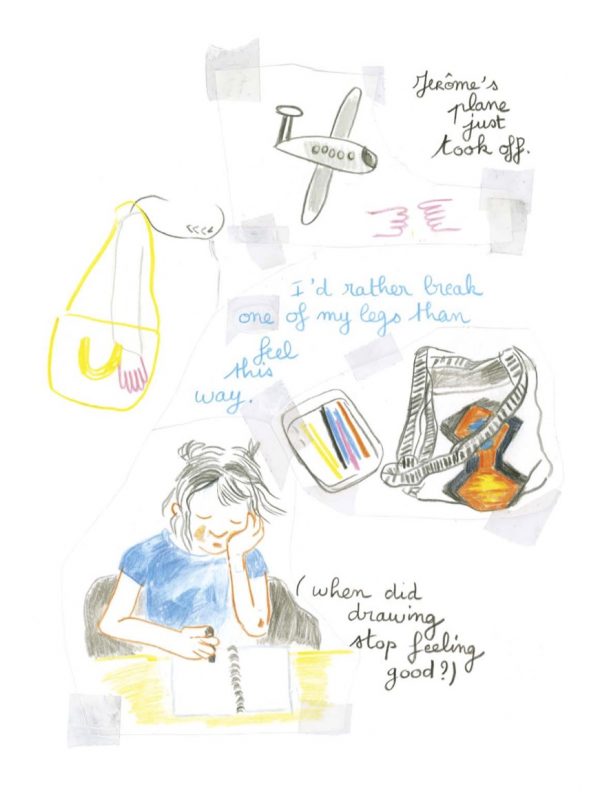 Jerôme's
plane
just
took off.
I'd rather break
one of my legs than
feel
this
way.
(when did
drawing
stop feeling
good?)